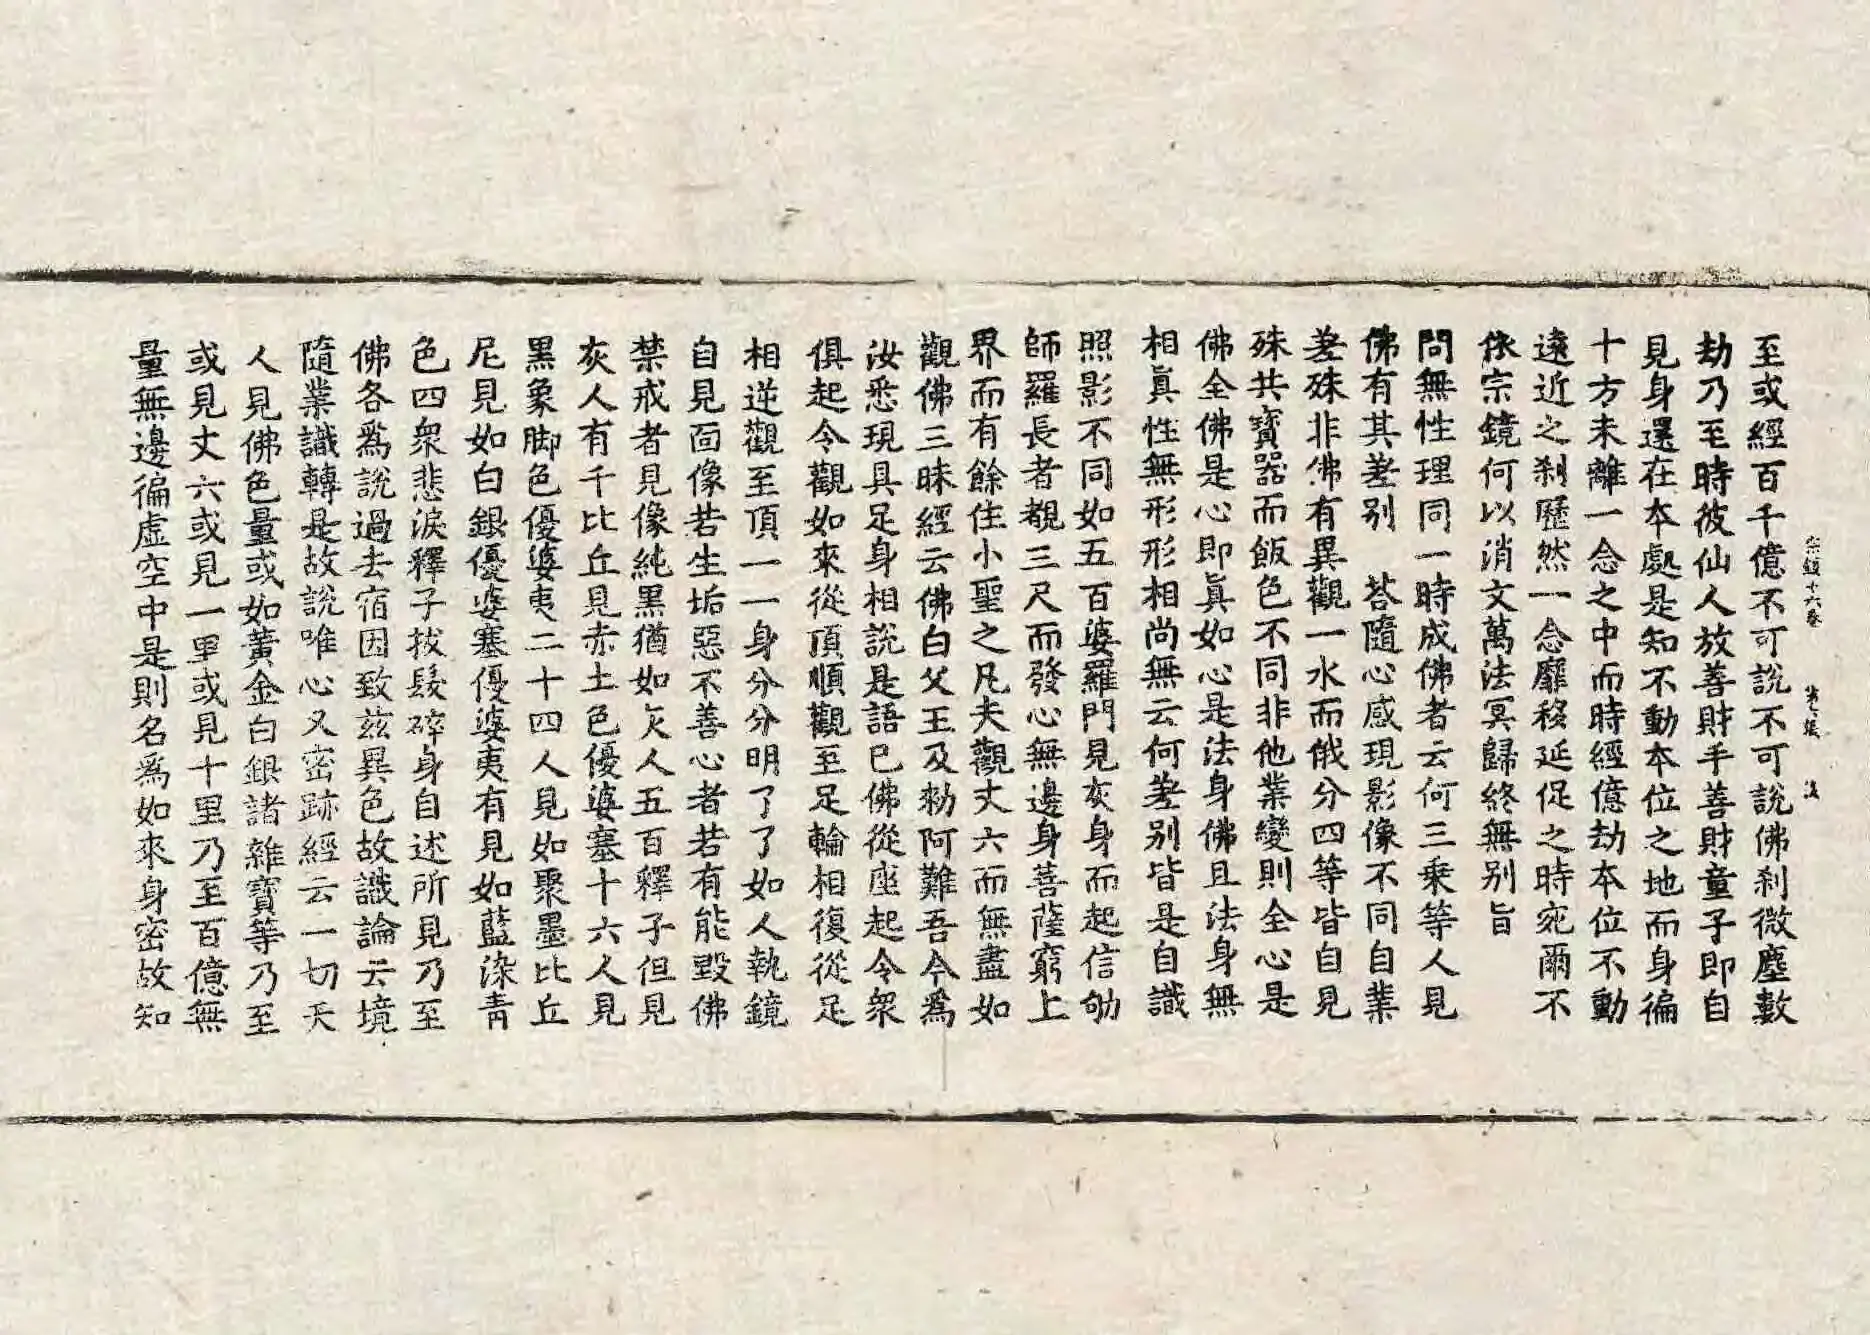 宗鏡十六卷　第七張
至或經百千億不可說不可說佛刹微塵數
劫乃至時彼仙人放善財手善財童子即自
見身還在本處是知不動本位之地而身徧
十方未離一念之中而時經億劫本位不動
遠近之刹歷然一念靡移延促之時宛爾不
依宗鏡何以消文萬法冥歸終無别旨
問無性理同一時成佛者云何三乗等人見
佛有其差别　荅隨心感現影像不同自業
差殊非佛有異觀一水而俄分四等皆自見
殊共寶器而飯色不同非他業變則全心是
佛全佛是心即眞如心是法身佛且法身無
相眞性無形形相尚無云何差别皆是自識
照影不同如五百婆羅門見灰身而起信劬
師羅長者覩三尺而發心無邊身菩薩窮上
界而有餘住小聖之凡夫觀丈六而無盡如
觀佛三昧經云佛白父王及勑阿難吾今爲
汝悉現具足身相說是語已佛從座起令衆
俱起令觀如來從頂順觀至足輪相復從足
相逆觀至頂一一身分分明了了如人執鏡
自見面像若生垢惡不善心者若有能毀佛
禁戒者見像純黑猶如灰人五百釋子但見
灰人有千比丘見赤土色優婆塞十六人見
黑象脚色優婆夷二十四人見如聚墨比丘
尼見如白銀優婆塞優婆夷有見如藍染青
色四衆悲淚釋子拔髮碎身自述所見乃至
佛各爲說過去宿因致茲異色故識論云境
隨業識轉是故說唯心又密跡經云一切天
人見佛色量或如黃金白銀諸雜寶等乃至
或見丈六或見一里或見十里乃至百億無
量無邊徧虛空中是則名爲如來身密故知